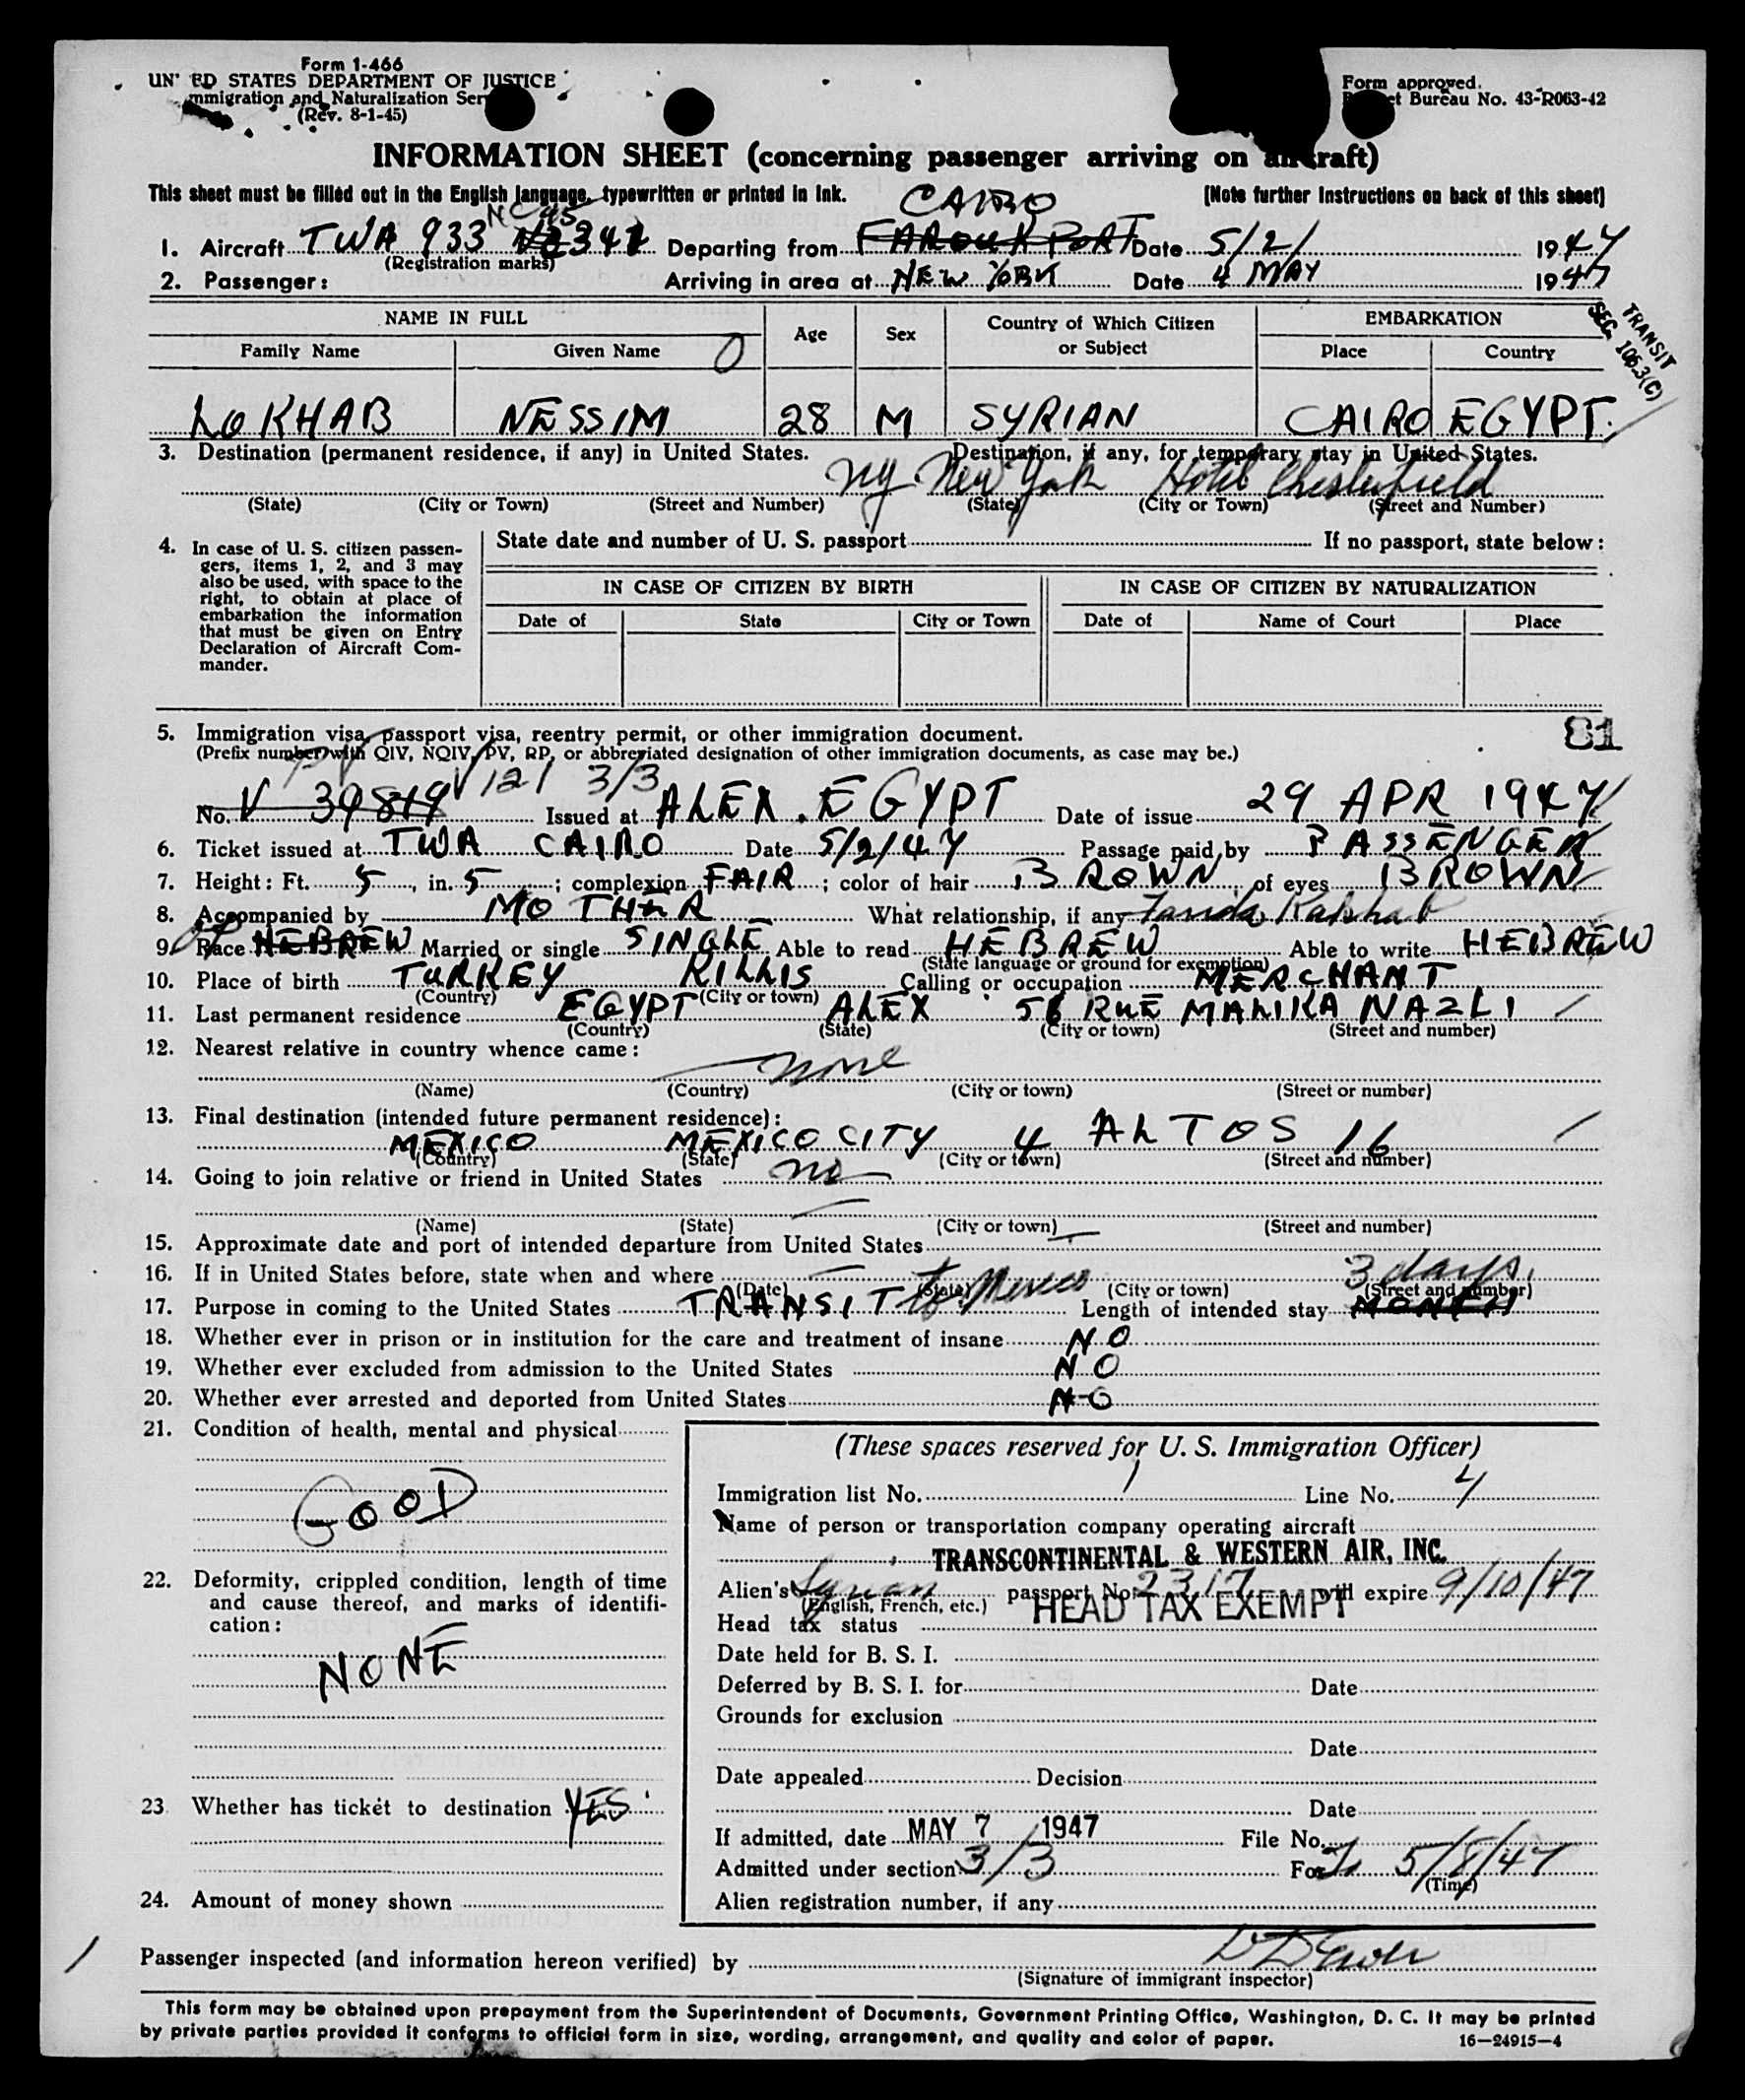 Form 1-466
UN ED STATES DEPARTMENT OF JUSTICE
mmigration and Naturalization Ser
(Rev. 8-1-45)
Form approved.
et Bureau No. 43-R063-42
INFORMATION SHEET (concerning passenger arriving on aircraft)
This sheet must be filled out in the English language, typewritten or printed in ink. [Note further instructions on back of this sheet]
NC 45 CAIRO
1. Aircraft TWA 933 Departing from FAROUK PORT Date 5/2/ 1947
(Registration marks)
2. Passenger: Arriving in area at NEW YORK Date 4 MAY 1947
TRANSIT
SEC. 106.3(C)
NAME IN FULL Age Sex Country of Which Citizen or Subject EMBARKATION
Family Name Given Name O Place Country
LOKHAB NESSIM 28 M SYRIAN CAIRO EGYPT.
3. Destination (permanent residence, if any) in United States. Destination, if any, for temporary stay in United States.
NY New York Hotel Chesterfield
(State) (City or Town) (Street and Number) (State) (City or Town) (Street and Number)
4. In case of U. S. citizen passen-
gers, items 1, 2, and 3 may
also be used, with space to the
right, to obtain at place of
embarkation the information
that must be given on Entry
Declaration of Aircraft Com-
mander.
State date and number of U. S. passport If no passport, state below:
IN CASE OF CITIZEN BY BIRTH IN CASE OF CITIZEN BY NATURALIZATION
Date of State City or Town Date of Name of Court Place
81
5. Immigration visa, passport visa, reentry permit, or other immigration document.
(Prefix number with QIV, NQIV, PV, RP, or abbreviated designation of other immigration documents, as case may be.)
PV V 121 3/3
No. V 39819 Issued at ALEX. EGYPT Date of issue 29 APR 1947
6. Ticket issued at TWA CAIRO Date 5/2/47 Passage paid by PASSENGER
7. Height: Ft. 5, in. 5; complexion FAIR; color of hair BROWN, of eyes BROWN
8. Accompanied by MOTHER What relationship, if any Farida
9. Race HEBREW Married or single SINGLE Able to read HEBREW Able to write HEBREW
(State language or ground for exemption)
10. Place of birth TURKEY KILLIS Calling or occupation MERCHANT
(Country) (City or town)
11. Last permanent residence EGYPT ALEX 56 RUE MALIKA NAZLI
(Country) (State) (City or town) (Street and number)
12. Nearest relative in country whence came:
none
(Name) (Country) (City or town) (Street or number)
13. Final destination (intended future permanent residence):
MEXICO MEXICO CITY 4 ALTOS 16
(Country) (State) (City or town) (Street and number)
14. Going to join relative or friend in United States no
(Name) (State) (City or town) (Street and number)
15. Approximate date and port of intended departure from United States
16. If in United States before, state when and where
(Date) (State) (City or town) (Street and number)
3 days.
17. Purpose in coming to the United States TRANSIT to Mexico Length of intended stay MONTH
18. Whether ever in prison or in institution for the care and treatment of insane NO
19. Whether ever excluded from admission to the United States NO
20. Whether ever arrested and deported from United States NO
21. Condition of health, mental and physical
GOOD
22. Deformity, crippled condition, length of time
and cause thereof, and marks of identifi-
cation:
NONE
23 Whether has ticket to destination YES
24. Amount of money shown
(These spaces reserved for U. S. Immigration Officer)
Immigration list No. 1 Line No. 4
Name of person or transportation company operating aircraft
TRANSCONTINENTAL & WESTERN AIR, INC.
Alien's Syrian passport No. 2317 will expire 9/10/47
(English, French, etc.)
Head tax status HEAD TAX EXEMPT
Date held for B. S. I.
Deferred by B. S. I. for Date
Grounds for exclusion
Date
Date appealed Decision
Date
If admitted, date MAY 7 1947 File No.
Admitted under section 3/3 For To 5/8/47
(Time)
Alien registration number, if any
Passenger inspected (and information hereon verified) by
(Signature of immigrant inspector)
This form may be obtained upon prepayment from the Superintendent of Documents, Government Printing Office, Washington, D. C. It may be printed
by private parties provided it conforms to official form in size, wording, arrangement, and quality and color of paper. 16—24915—4